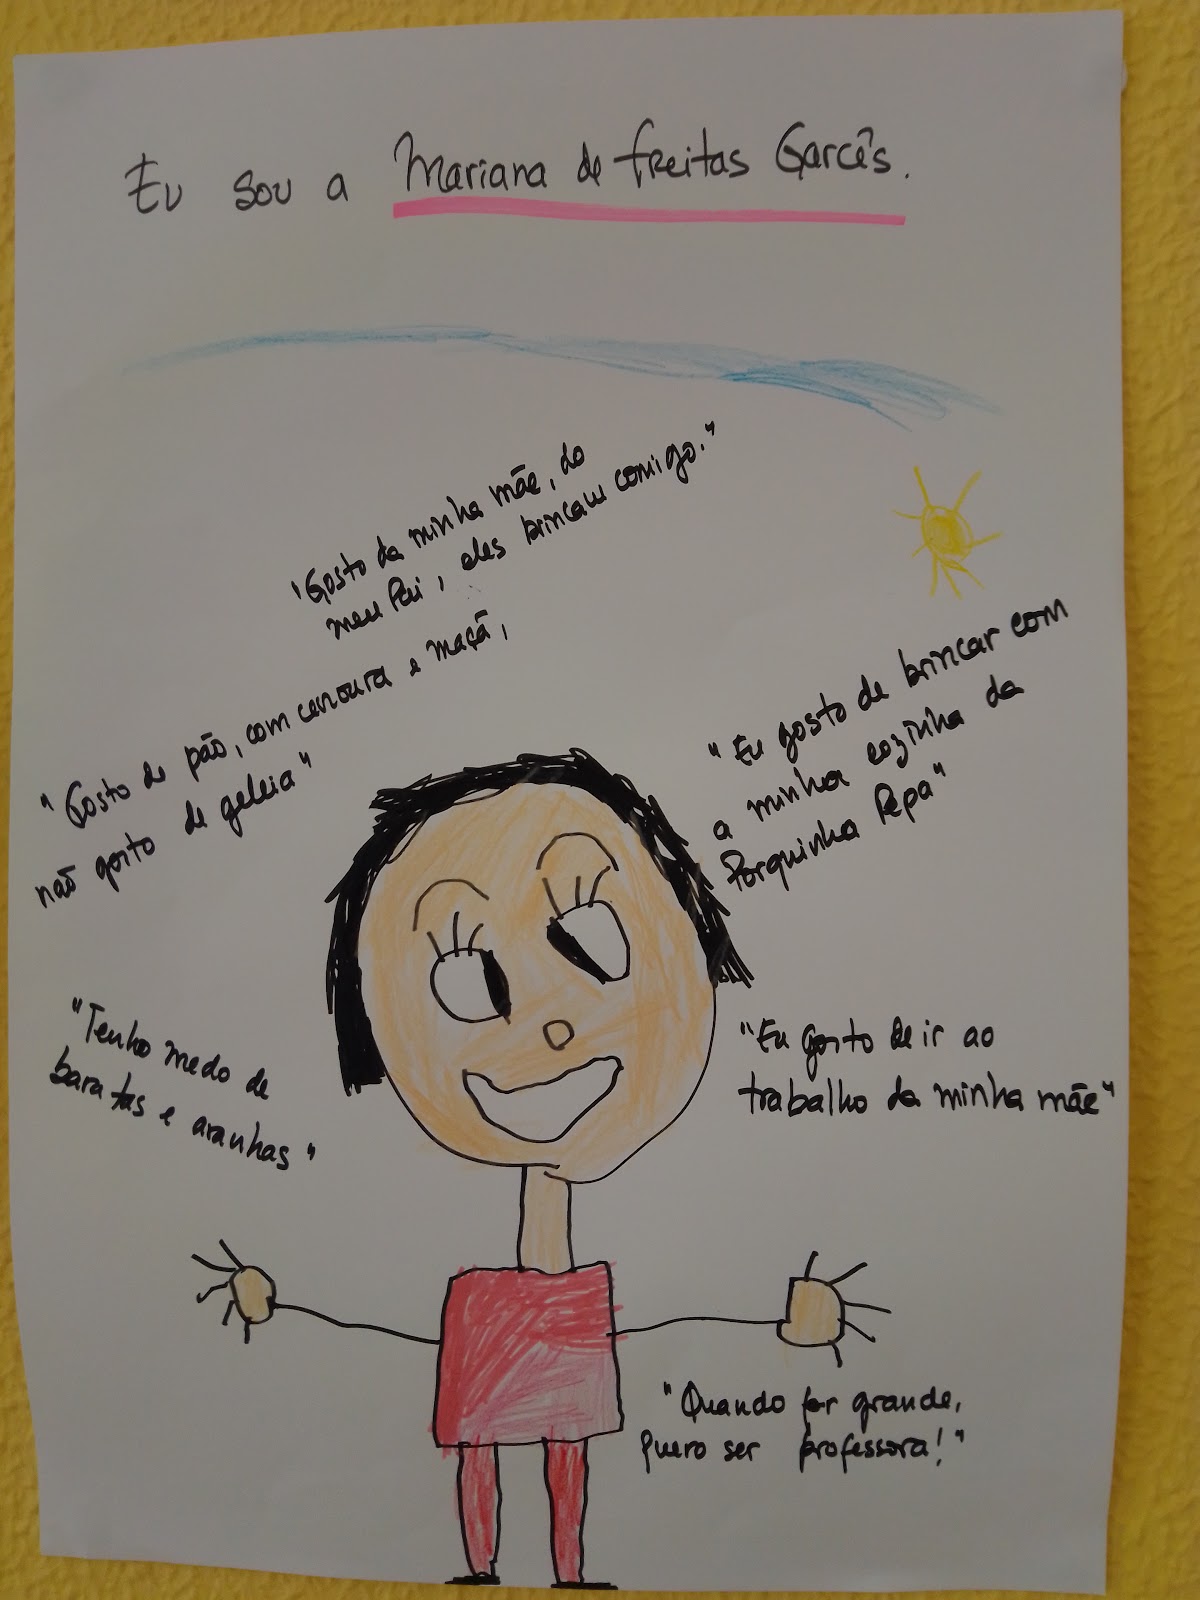 Eu sou a Mariana de Freitas Garcês.
"Gosto da minha mãe, do
meu Pai, eles brincam comigo."
"Gosto de pão, com cenoura e maçã,
não gosto de geleia"
"Eu gosto de brincar com
a minha cozinha da
Porquinha Pepa"
"Tenho medo de
baratas e aranhas"
"Eu gosto de ir ao
trabalho da minha mãe"
"Quando for grande,
quero ser professora!"